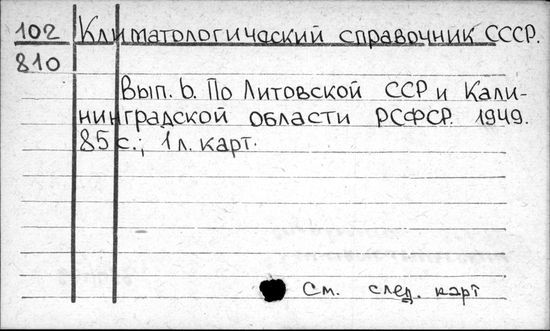 102 Климатологический справочник СССР.
810
Вып. 6. По Литовской ССР и Кали-
нинградской области РСФСР. 1949.
85 с.; 1 л. карт.
См. след. карт